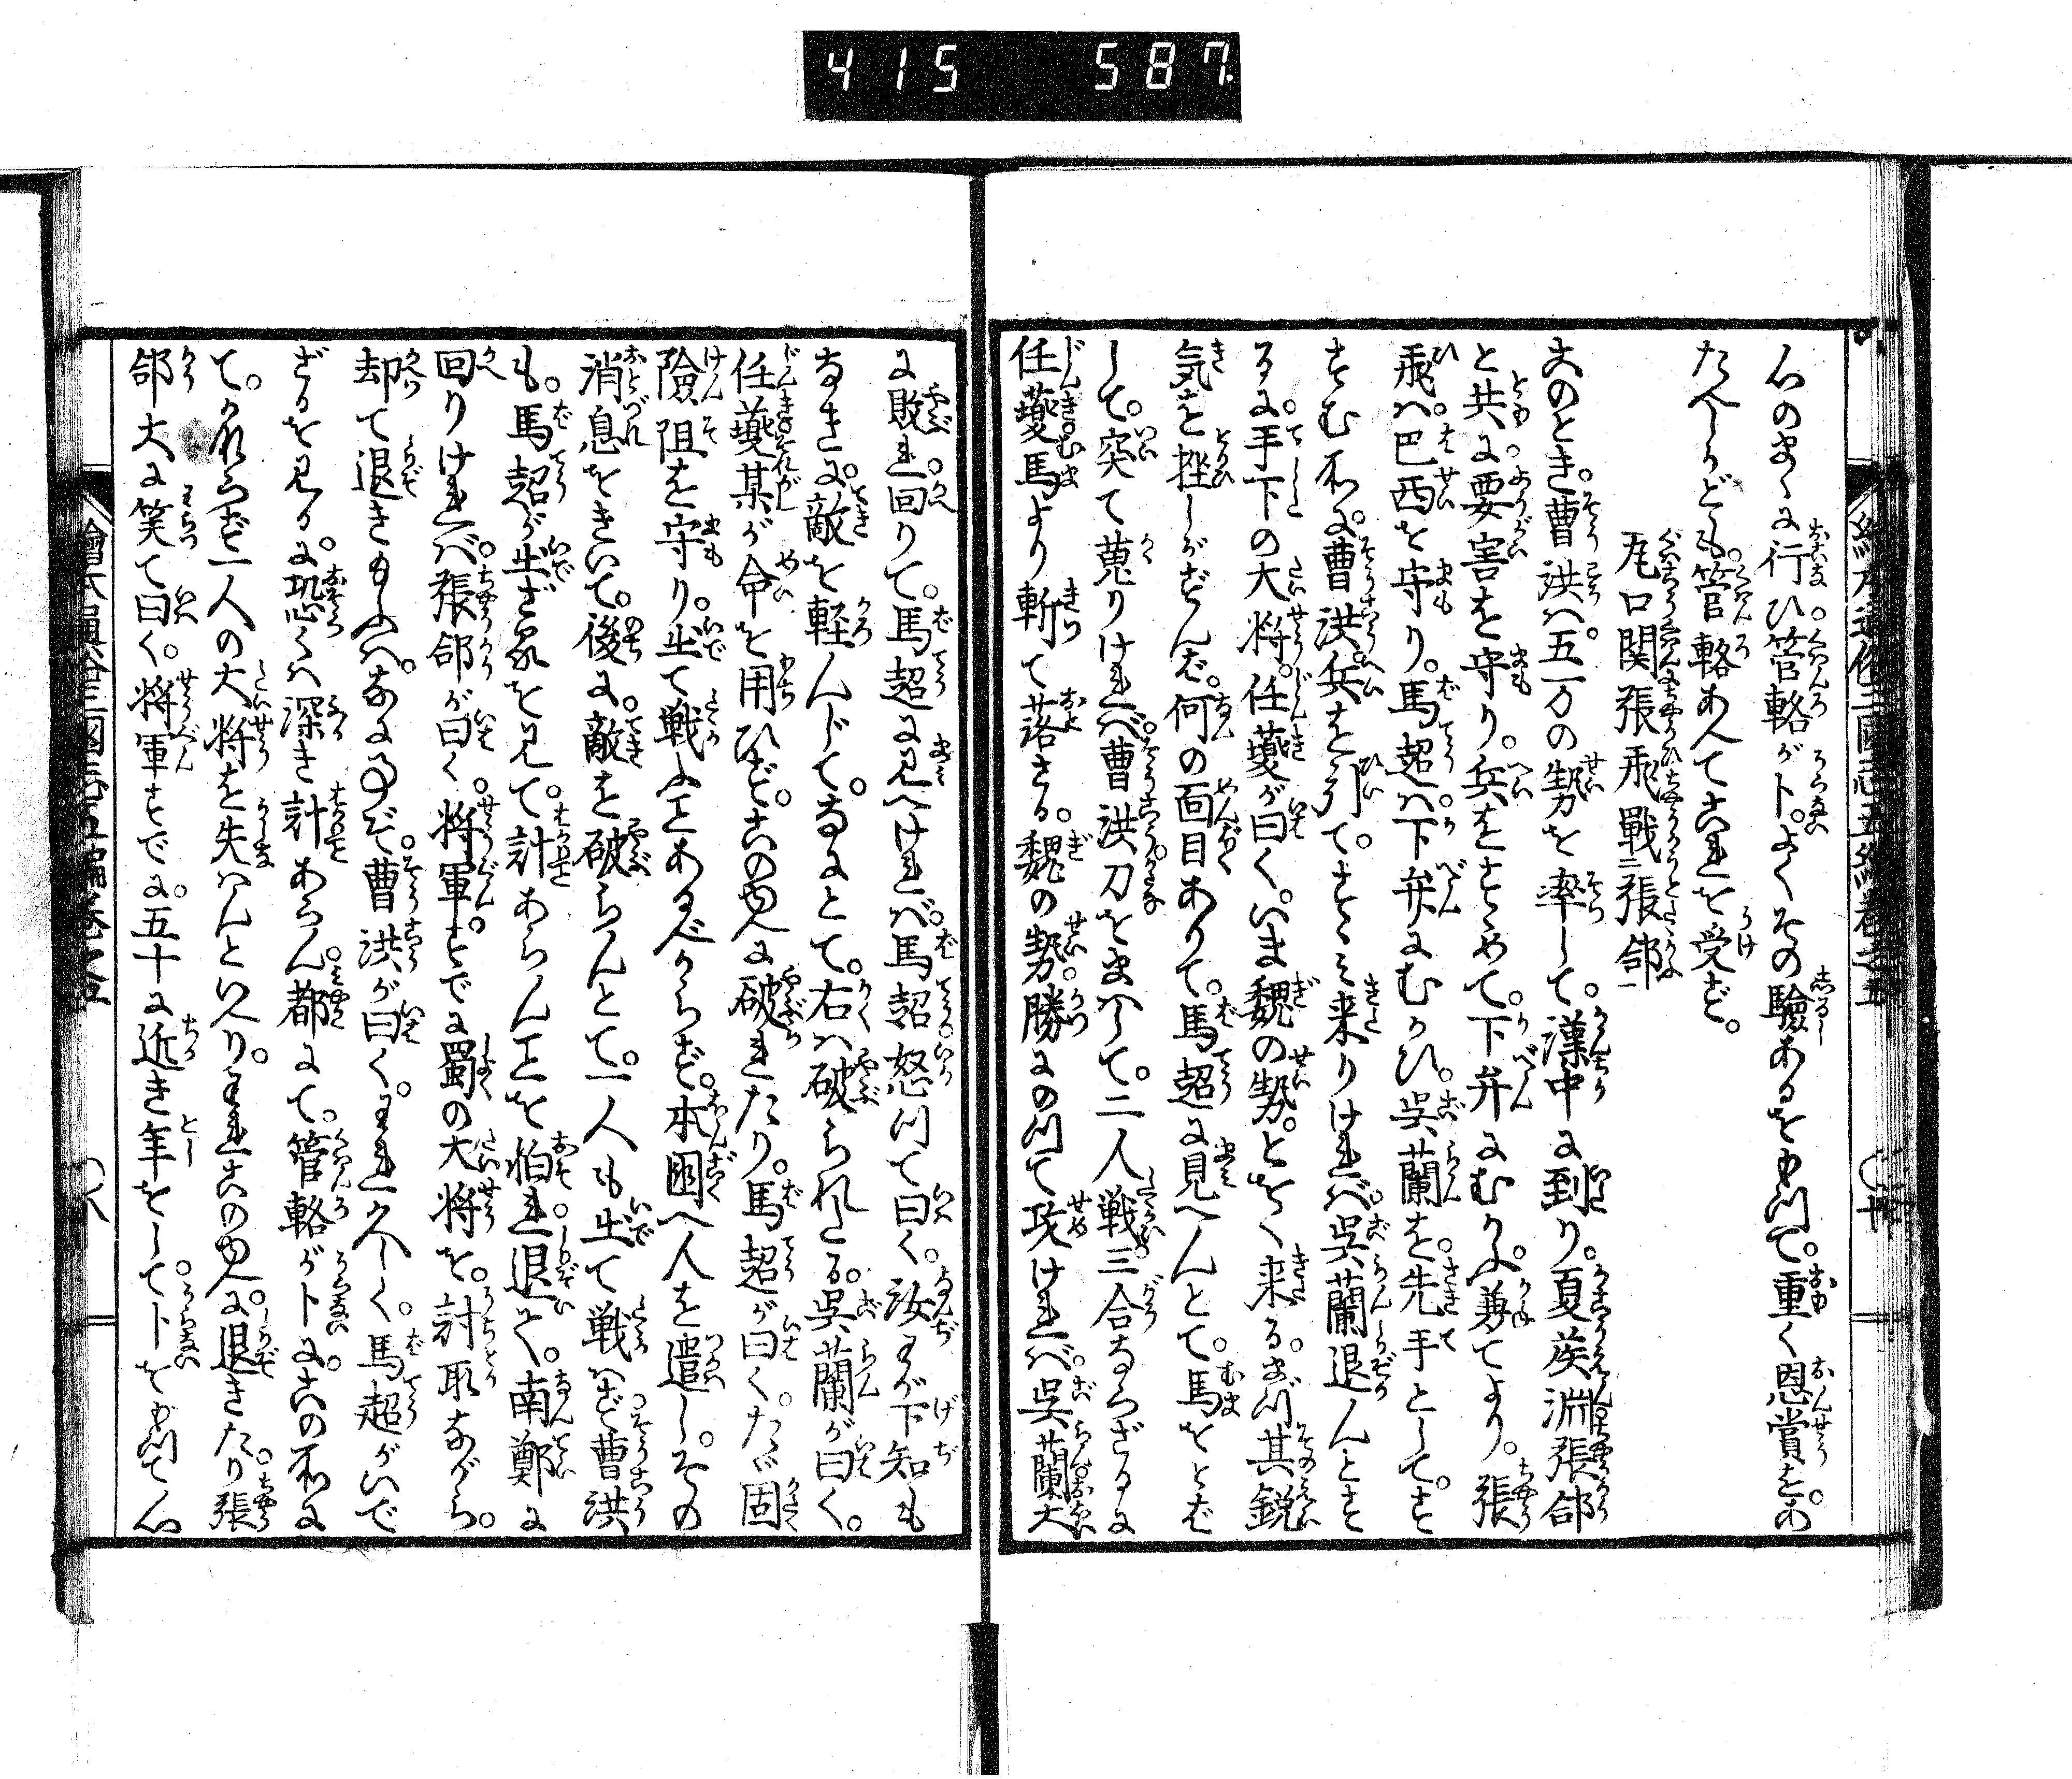 415 587
心のまゝに行ひ管輅が卜。よくその験あるをもつて。重く恩賞を。あ
たへしかども。管輅あへてこれを受ず。
瓦口関張飛戦張郃
このとき。曹洪ハ。五万の勢を率して。漢中に到り。夏侯淵張郃
と共に。要害を守り。兵をすゝめて。下弁にむかふ。兼てより。張
飛ハ。巴西を守り。馬超ハ。下弁にむかひ。呉蘭を。先手として。す
すむ所に。曹洪。兵を引て。すゝミ来りけれバ。呉蘭退んとす
るに。手下の大将。任夔が曰く。いま魏の勢。とをく来る。まづ其鋭
気を挫しがずんば。何の面目ありて。馬超に見へんとて。馬をとば
して。突て蒐りけれバ。曹洪刀をまハして。二人戦。三合ならざるに
任夔馬より斬て落さる。魏の勢。勝にのつて攻けれバ。呉蘭大
に敗れ。回りて。馬超に見へけれバ。馬超。怒つて曰く。汝わが下知も
なきに。敵を軽んじて。なにとて。右ハ破られたる。呉蘭が曰く。
任夔某が命を用ひず。このゆへに破れたり。馬超が曰く。たゞ固く
険阻を守り。出て戦ふことあるべからず。本国へ人を遣し。その
消息をきいて。後に。敵を破らんとて。一人も出て戦ハず。曹洪
も。馬超が出ざるを見て。計あらんことを怕れ退て。南鄭に
回りけれバ。張郃が曰く。将軍。すでに蜀の大将を。討取ながら。
却て退きもふハ。なに事ぞ。曹洪が曰く。われ久しく。馬超がいで
ざるを見るに。恐くハ深き計あらん。都にて。管輅が卜に。この所に
て。かならず一人の大将を失ハんといへり。われこのゆへに。退きたり。張
郃大に笑て曰く。将軍すでに。五十に近き年をして。卜をもつて心